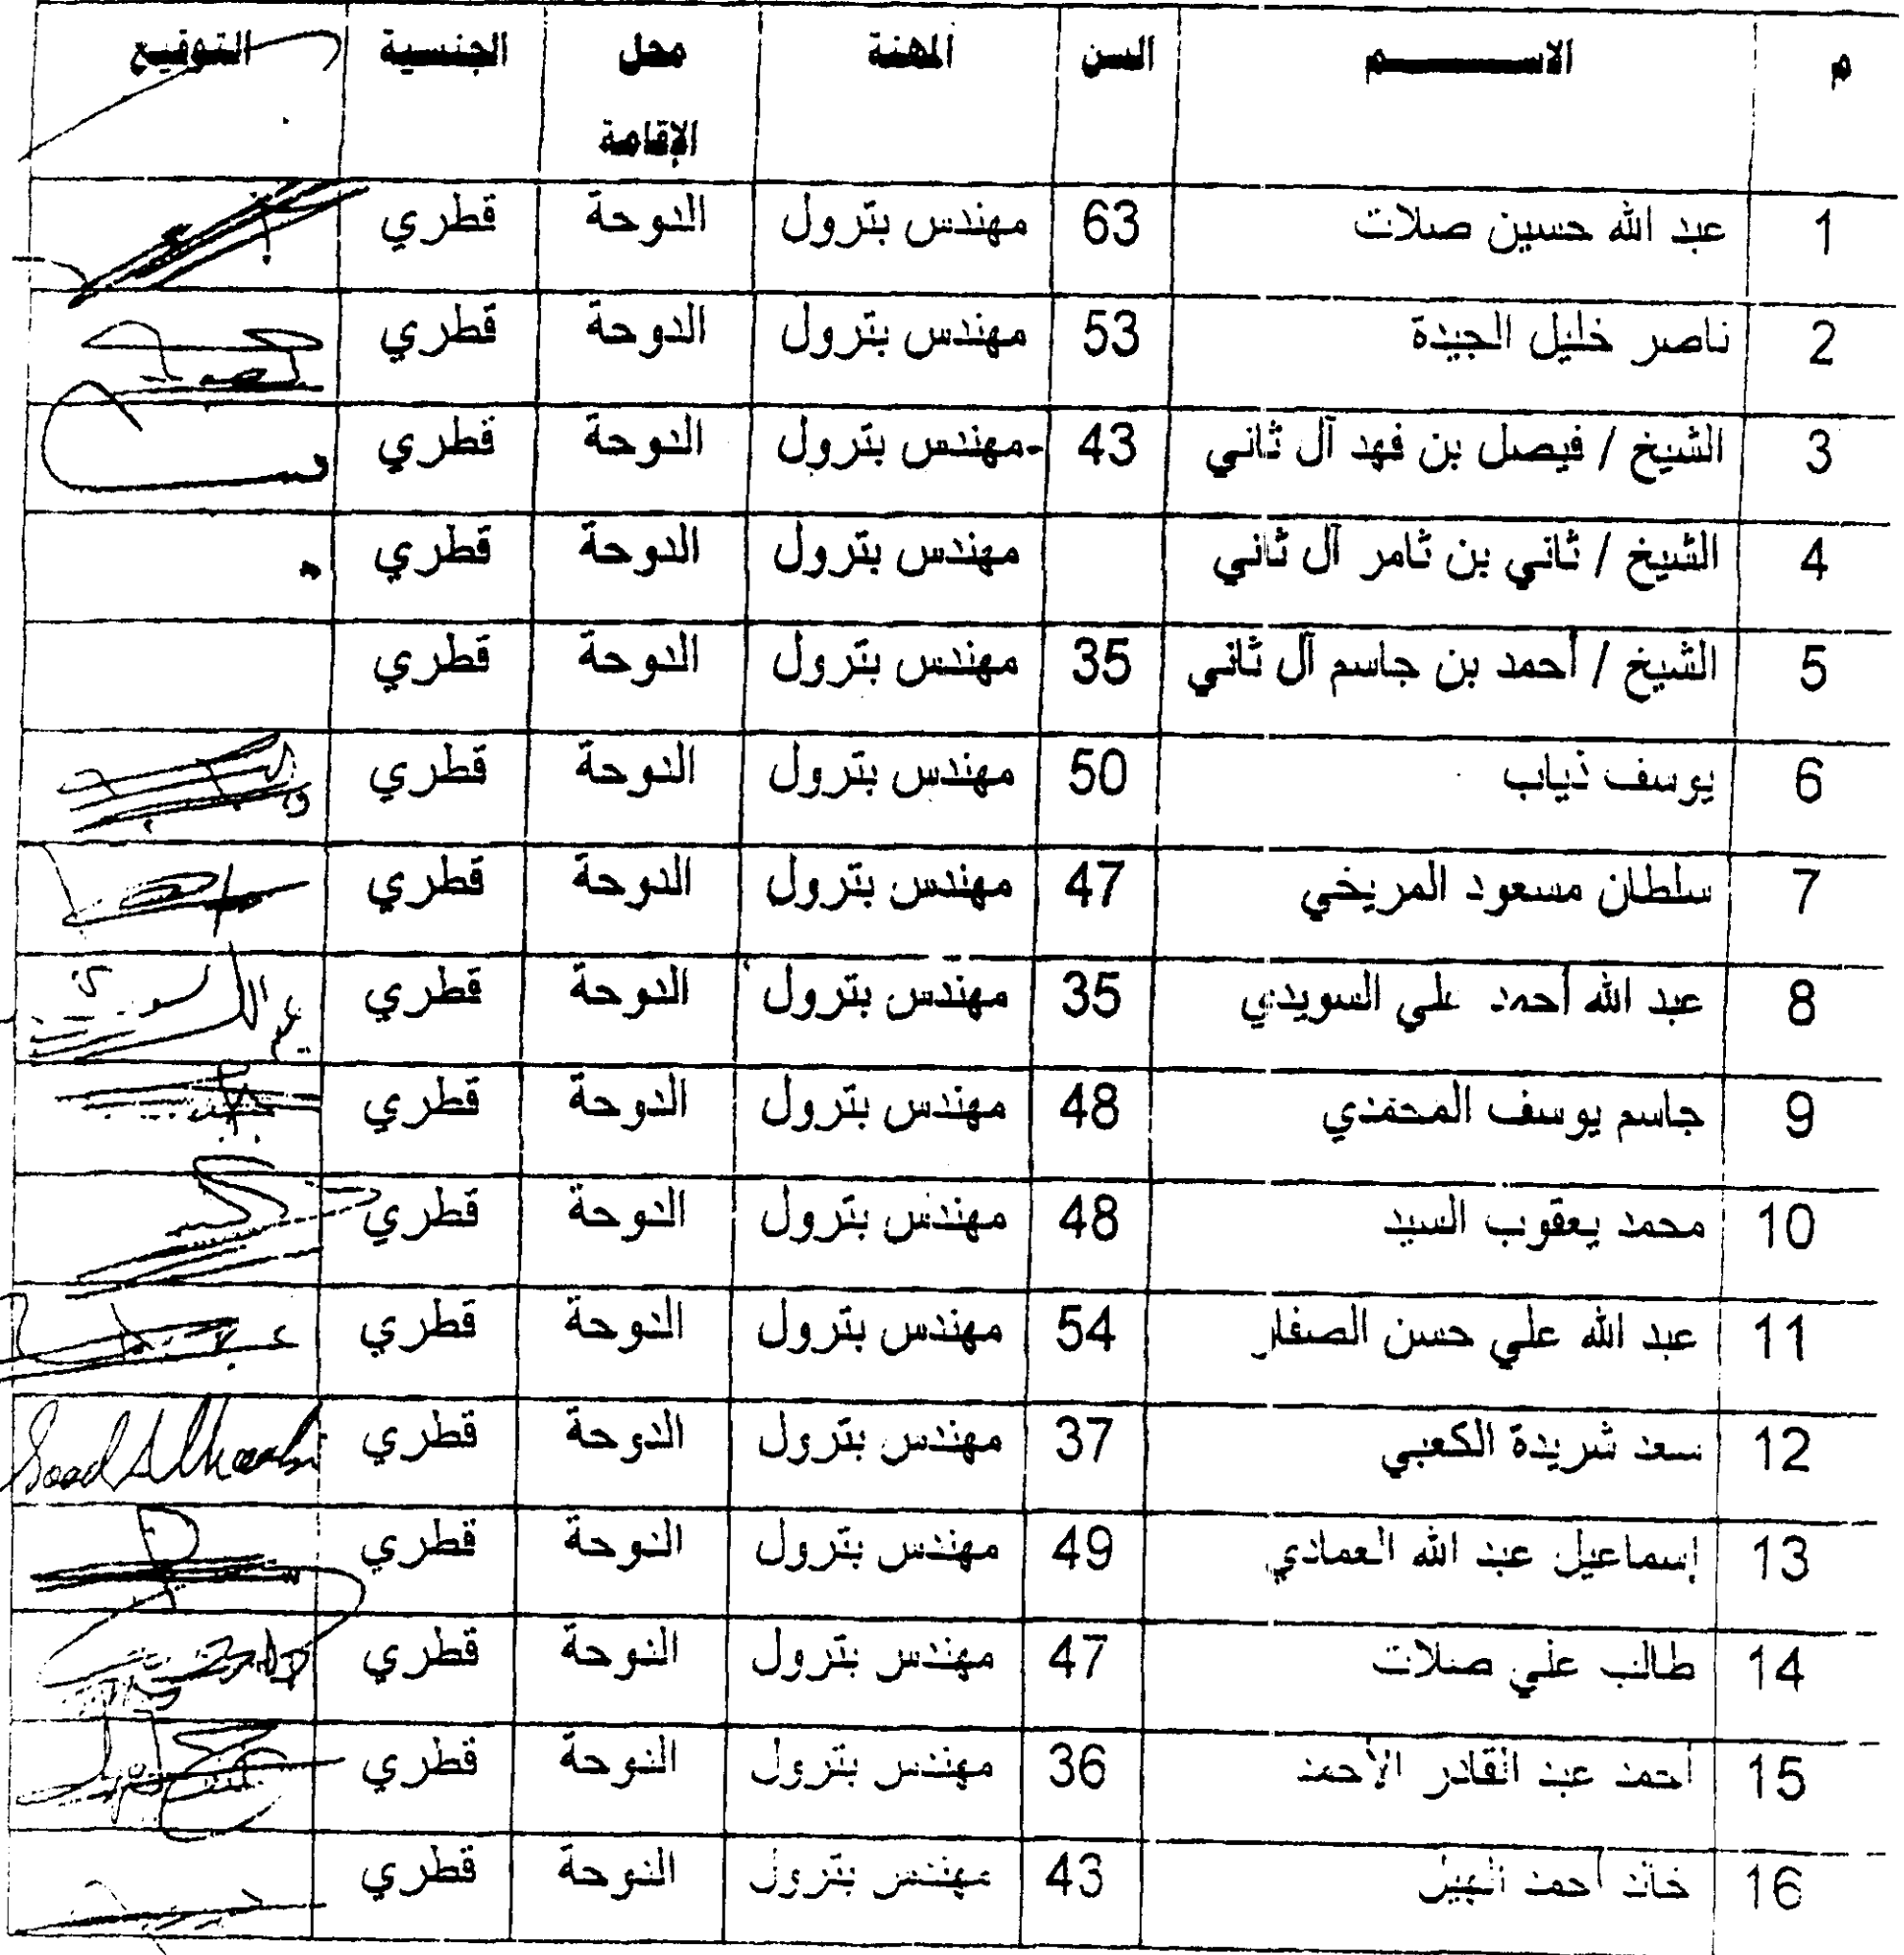 م الاســـــم السن المهنة محل الإقامة الجنسية التوقيع
1 عبد الله حسين صلات 63 مهندس بترول الدوحة قطري
2 ناصر خليل الجيدة 53 مهندس بترول الدوحة قطري
3 الشيخ / فيصل بن فهد آل ثاني 43 مهندس بترول الدوحة قطري
4 الشيخ / ثاني بن ثامر آل ثاني مهندس بترول الدوحة قطري
5 الشيخ / أحمد بن جاسم آل ثاني 35 مهندس بترول الدوحة قطري
6 يوسف ذياب 50 مهندس بترول الدوحة قطري
7 سلطان مسعود المريخي 47 مهندس بترول الدوحة قطري
8 عبد الله أحمد علي السويدي 35 مهندس بترول الدوحة قطري
9 جاسم يوسف المحمدي 48 مهندس بترول الدوحة قطري
10 محمد يعقوب السيد 48 مهندس بترول الدوحة قطري
11 عبد الله علي حسن الصفار 54 مهندس بترول الدوحة قطري
12 سعد شريدة الكعبي 37 مهندس بترول الدوحة قطري Saad Alkaabi
13 إسماعيل عبد الله العمادي 49 مهندس بترول الدوحة قطري
14 طالب علي صلات 47 مهندس بترول الدوحة قطري
15 أحمد عبد القادر الأحمد 36 مهندس بترول الدوحة قطري
16 خالد أحمد الهيل 43 مهندس بترول الدوحة قطري